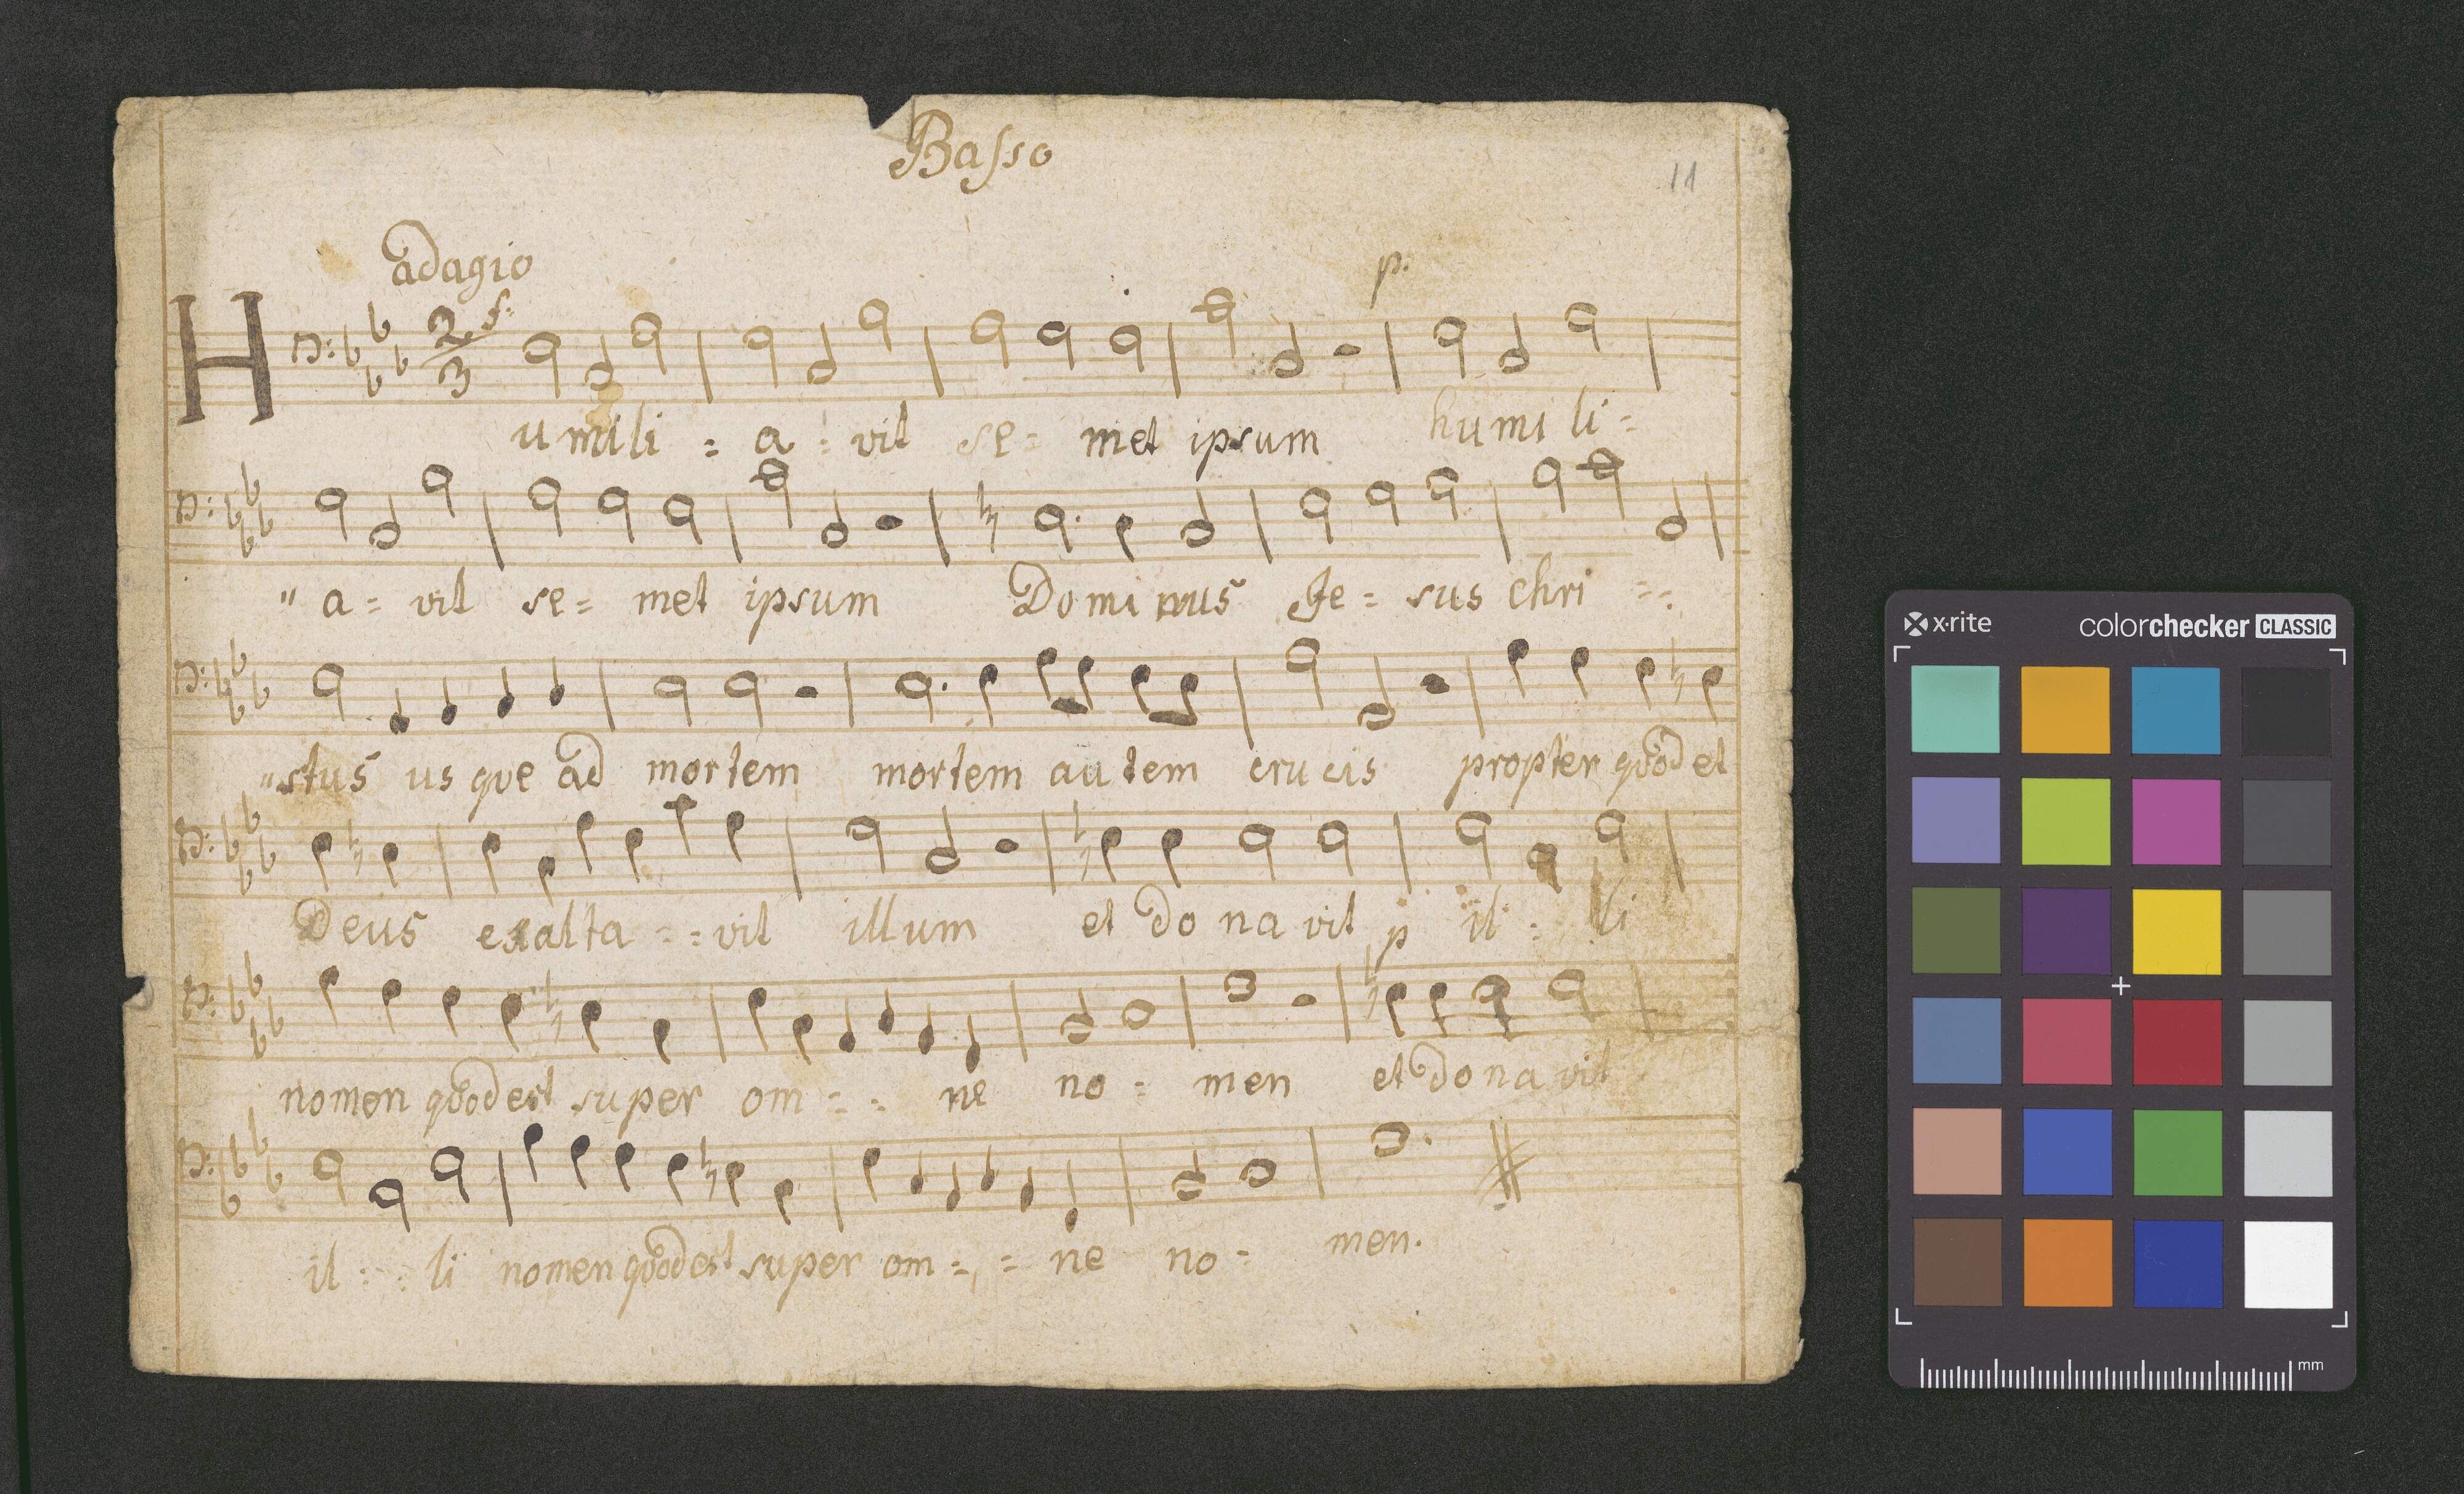 Basso
11
adagio
2. f.
3
p.
Humili = a = vit se = met ipsum humi li =
" a = vit se = met ipsum Dominus Je = sus Chri = =
" stus us que ad mortem mortem autem crucis propter quod et
Deus exalta = = vit illum et do na vit p il = li
nomen quod est super om = = ne no = men et do na vit
il = = li nomen quod est super om = = ne no = men.
x·rite
colorchecker CLASSIC
mm